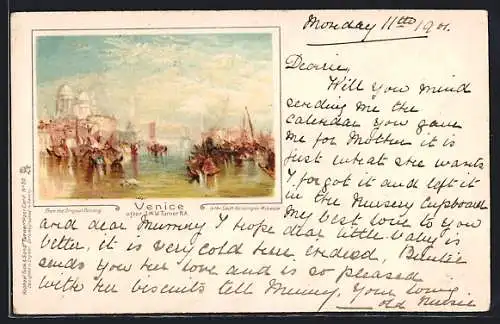 Monday 11th 1901.
Dearie,
Will you mind
sending me the
calendar you gave
me for Mother it is
just what she wants
I forgot it and left it
in the Nursery Cupboard
My best love to you
and dear Mummy I hope dear little is
better, it is very cold here indeed,
sends you her love and is so pleased
with her biscuits tell Mummy, Your loving
old Nursie
From the Original Painting
Venice
after J.M.W. Turner R.A.
in the South Kensington Museum